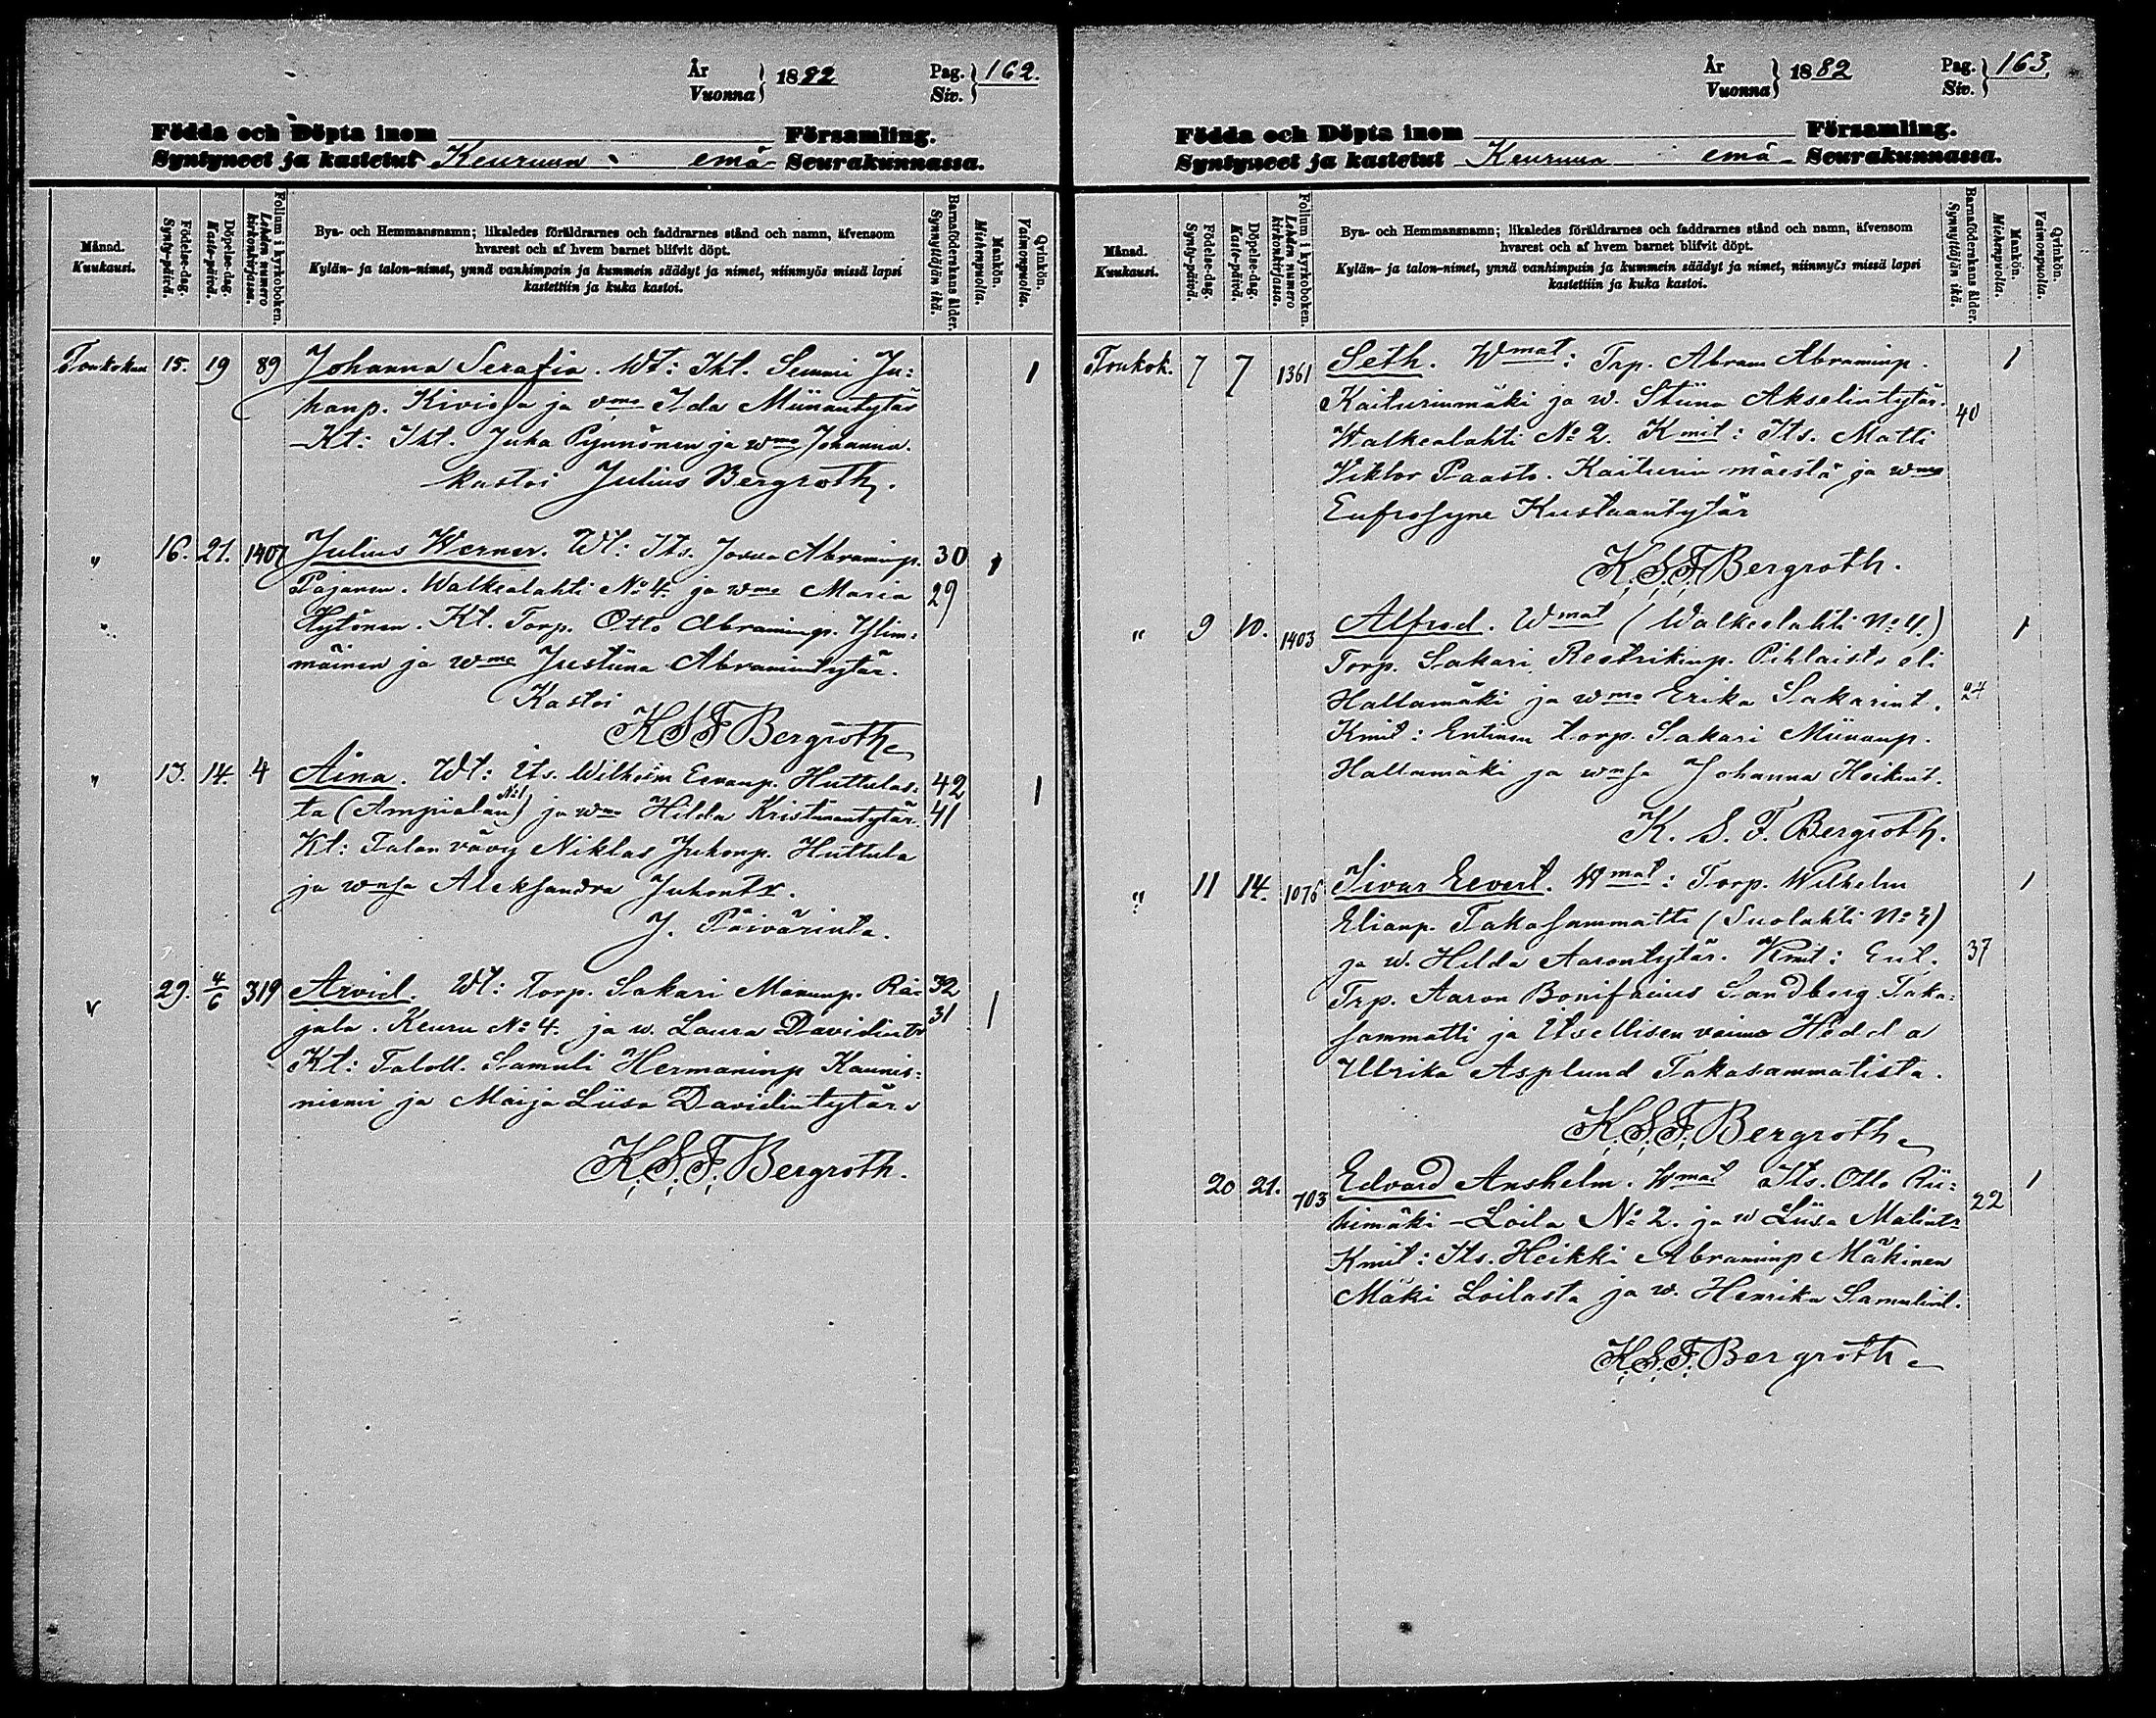 År
Vuonna } 1882
Pag.
Siv. } 162.
Födda och Döpta inom Församling.
Syntyneet ja kastetut Keuruun emä- Seurakunnassa.
Månad.
Kuukausi.
Födelse-dag.
Synty-päivä.
Döpelse-dag.
Kaste-päivä.
Folium i kyrkoboken.
Lehden numero kirkonkirjassa.
Bya- och Hemmansnamn; likaledes föräldrarnes och faddrarnes stånd och namn, äfvensom
hvarest och af hvem barnet blifvit döpt.
Kylän- ja talon-nimet, ynnä vanhimpain ja kummein säädyt ja nimet, niinmyös missä lapsi
kastettiin ja kuka kastoi.
Barnaföderskans ålder.
Synnyttäjän ikä.
Mankön.
Miehenpuolia.
Qvinkön.
Vaimonpuolia.
Toukokuu 15. 19 89 Johanna Serafia. Wt: Iht. Semmi Ju= 1
hanp. Kivioja ja vmo Ida Miinantytär
Kt: Iht. Juha Pynnönen ja wmo Johanna.
kastoi Julius Bergroth.
" 16. 21. 1407 Julius Werner. Wt: Its. Josua Abraminp. 30 1
Pajanen. Walkealahti No 4. ja wmo Maria 29
Hytönen. Kt. Torp. Otto Abraminp. Ylim=
mäinen ja wmo Justiina Abramintytär.
Kastoi
K S F Bergroth
" 13. 14. 4 Aina. Wt: Its. Wilhelm Eevanp. Huttulas= 42 1
ta (Ampialan No 1) ja wmo Hilda Kristiinantytär. 41
Kt: Talon vävy Niklas Juhonp. Huttula
ja wnsa Aleksandra Juhontr.
J. Päivärinta.
" 29. 4/6 319 Arvid. Wt: torp. Sakari Manunp. Rä= 32
jala. Keuru No 4. ja w. Laura Davidintr 31 1
Kt: Taloll. Samuli Hermaninp Kaunis=
niemi ja Maija Liisa Davidintytär
K. S. F. Bergroth.
År
Vuonna } 1882
Pag.
Siv. } 163
Födda och Döpta inom Församling.
Syntyneet ja kastetut Keuruun emä- Seurakunnassa.
Månad.
Kuukausi.
Födelse-dag.
Synty-päivä.
Döpelse-dag.
Kaste-päivä.
Folium i kyrkoboken.
Lehden numero kirkonkirjassa.
Bya- och Hemmansnamn; likaledes föräldrarnes och faddrarnes stånd och namn, äfvensom
hvarest och af hvem barnet blifvit döpt.
Kylän- ja talon-nimet, ynnä vanhimpain ja kummein säädyt ja nimet, niinmyös missä lapsi
kastettiin ja kuka kastoi.
Barnaföderskans ålder.
Synnyttäjän ikä.
Mankön.
Miehenpuolia.
Qvinkön.
Vaimonpuolia.
Toukok. 7 7 1361 Seth. Wmat: Trp. Abram Abraminp. 1
Kaiturinmäki ja w. Stiina Akselintytär. 40
Walkealahti No 2. Kmit: Its. Matti
Viktor Paasto. Kaiturin mäestä ja wmo
Eufrosyne Kustaantytär
K. S. F. Bergroth.
" 9 10. 1403 Alfred. Wmat (Walkealahti No 4.) 1
Torp. Sakari Reetrikinp. Pihlaisto eli
Hallamäki ja wmo Erika Sakarint. 24
Kmit: Entinen torp. Sakari Miinanp.
Hallamäki ja wnsa Johanna Heikint.
K. S. F. Bergroth.
" 11 14. 1076 Sivar Eevert. Wmat: Torp. Wilhelm 1
Elianp. Takasammatti (Suolahti No 3)
ja w. Hilda Aarontytär. Kmit: Ent. 37
Trp. Aaron Bonifacius Sandberg Taka=
sammatti ja Itsellisen vaimo Hedda
Ullrika Asplund Takasammatista.
K. S. F. Bergroth
20 21. 703 Edvard Anshelm. Wmat Its. Otto Rii= 1
himäki - Loila No 2. ja w Liisa Malintr 22
Kmit: Its. Heikki Abraminp Mäkinen
Mäki Loilasta ja w. Henrika Samulint.
K. S. F. Bergroth